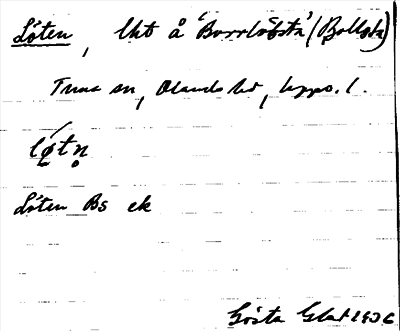 Löten, lht å 'Borrlöbsta' (Bollsta)
Tuna sn, Olands hd, Upps. l.
lǿtn̥
Löten Bs ek
Gösta Glad 1906